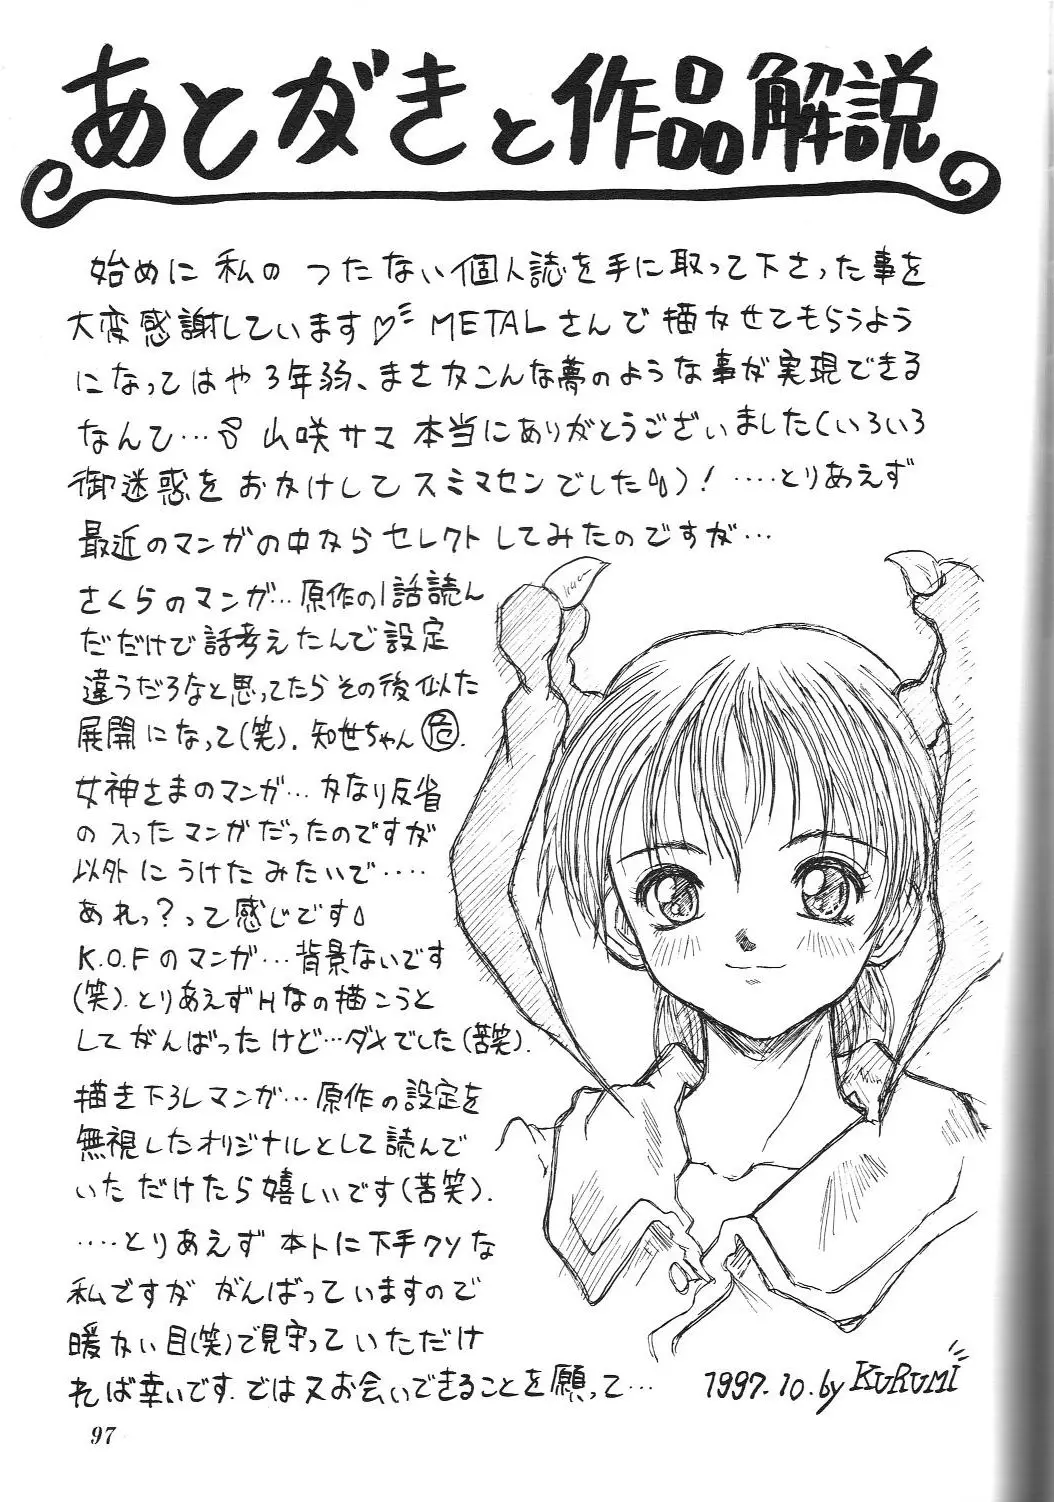 あとがきと作品解説
始めに私のつたない個人誌を手に取って下さった事を
大変感謝しています♡ METALさんで描かせてもらうよう
になってはや3年弱、まさかこんな夢のような事が実現できる
なんひ…山咲サマ本当にありがとうございました(いろいろ
御迷惑をおかけしてスミマセンでした)!‥‥とりあえず
最近のマンガの中からセレクトしてみたのですが…
さくらのマンガ…原作の1話読ん
だだけで話考えたんで設定
違うだろなと思ってたらその後似た
展開になって(笑).知世ちゃん㊋.
女神さまのマンガ…かなり反省
の入ったマンガだったのですが
以外にうけたみたいで‥‥
あれっ?って感じです
K.O.Fのマンガ…背景ないです
(笑).とりあえずHなの描こうと
してがんばったけど…ダメでした(苦笑).
描き下ろしマンガ…原作の設定を
無視したオリジナルとして読んで
いただけたら嬉しいです(苦笑).
‥‥とりあえず本トに下手クソな
私ですががんばっていますので
暖かい目(笑)で見守っていただけ
れば幸いです.では又お会いできることを願って…
1997.10.by KURUMI
97